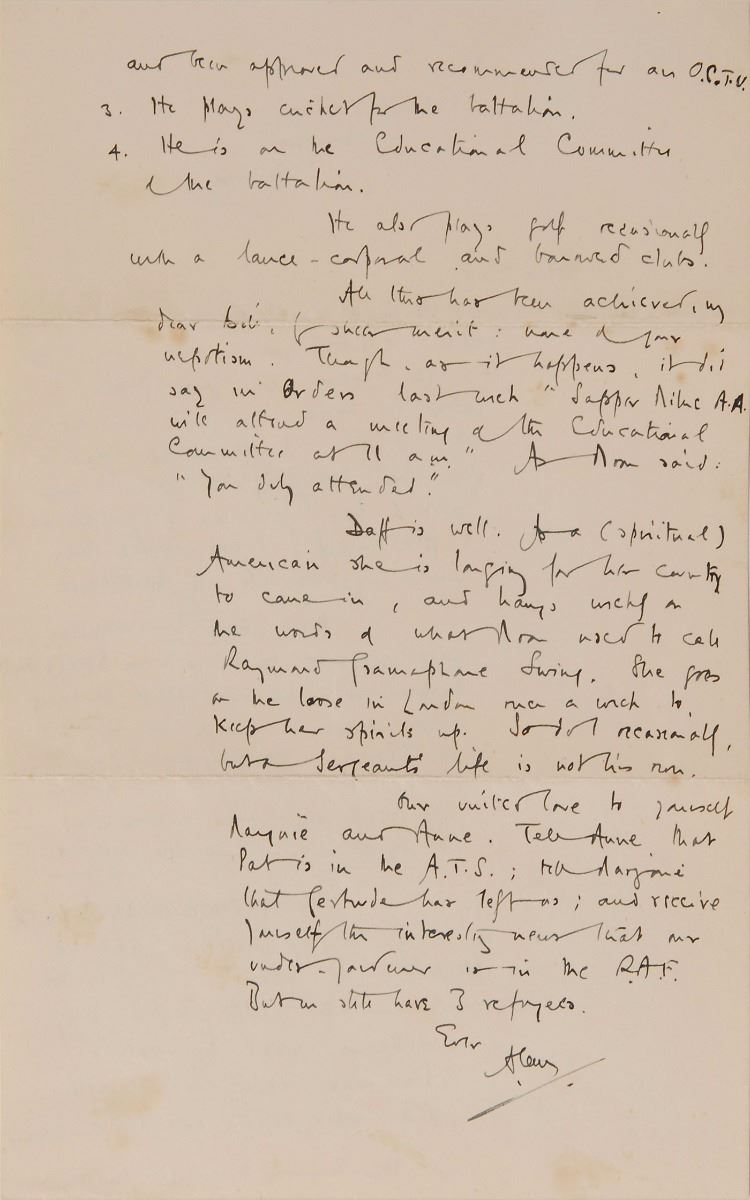 and been approved and recommended for an O.C.T.U.
3. He plays cricket for the battalion.
4. He is on the Educational Committee
of the battalion.
He also plays golf occasionally
with a lance-corporal and borrowed clubs.
All this has been achieved, my
dear by sheer merit: none of your
nepotism. Though, as it happens, it did
say in Orders last week "Sapper Milne A.A.
will attend a meeting of the Educational
Committee at 11 a.m." As Moon said:
"You duly attended."
Daff is well. As a (spiritual)
American she is longing for her country
to come in, and hangs nightly on
the words of what Moon used to call
Raymond Gramaphone Swing. She goes
on the loose in London once a week to
keep her spirits up. So do I occasionally,
but a Sergeant's life is not his own.
Our united love to yourself
and Anne. Tell Anne that
Pat is in the A.T.S.; tell Marjorie
that Gertrude has left us; and receive
yourself the interesting news that our
under-gardener is in the R.A.F.
But we still have 3 refugees.
Ever
Alan